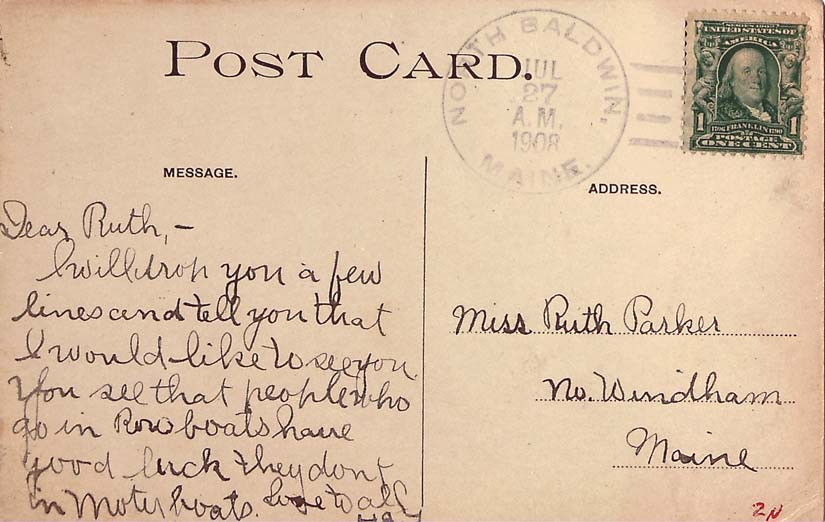 POST CARD.
NORTH BALDWIN,
JUL
27
A.M.
1908
MAINE.
SERIES 1902
UNITED STATES OF
AMERICA
1706 FRANKLIN 1790
1 POSTAGE 1
ONE CENT
MESSAGE.
Dear Ruth,-
I will drop you a few
lines and tell you that
I would like to see you
You see that people who
go in Row boats have
good luck they dont
in Moter boats. Love to all
ADDRESS.
Miss Ruth Parker
No. Windham
Maine